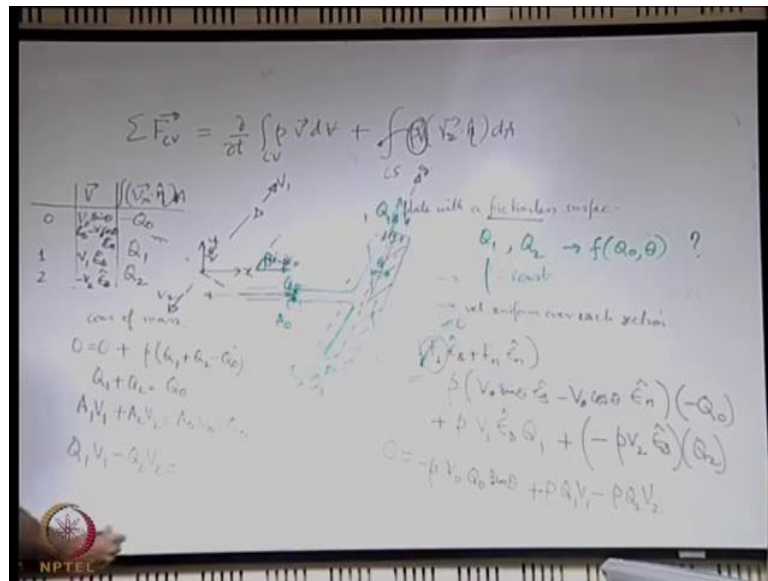 ∑ F⃗_CV = ∂/∂t ∫_CV ρ V⃗ dV + ∫_CS ρV⃗ (V⃗_r·η̂) dA
V⃗ | ∫(V⃗_r·η̂) dA
0 | -Q₀
1 | V₁ ε̂_s | Q₁
2 | -V₂ ε̂_s | Q₂
V₁
V₂
x
A₀
plate with a frictionless surface
Q₁, Q₂ → f(Q₀, θ) ?
→ ρ - const
→ vel uniform over each section
cons of mass
0 = 0 + ρ(Q₁ + Q₂ - Q₀)
Q₁ + Q₂ = Q₀
A₁V₁ + A₂V₂ = A₀V₀
Q₁V₁ - Q₂V₂ =
ε̂_s + F_n ε̂_n)
ρ(V₀ sinθ ε̂_s - V₀ cosθ ε̂_n)(-Q₀)
+ ρ V₁ ε̂_s Q₁ + (-ρV₂ ε̂_s)(Q₂)
0 = -ρ V₀ Q₀ sinθ + ρQ₁V₁ - ρQ₂V₂
NPTEL